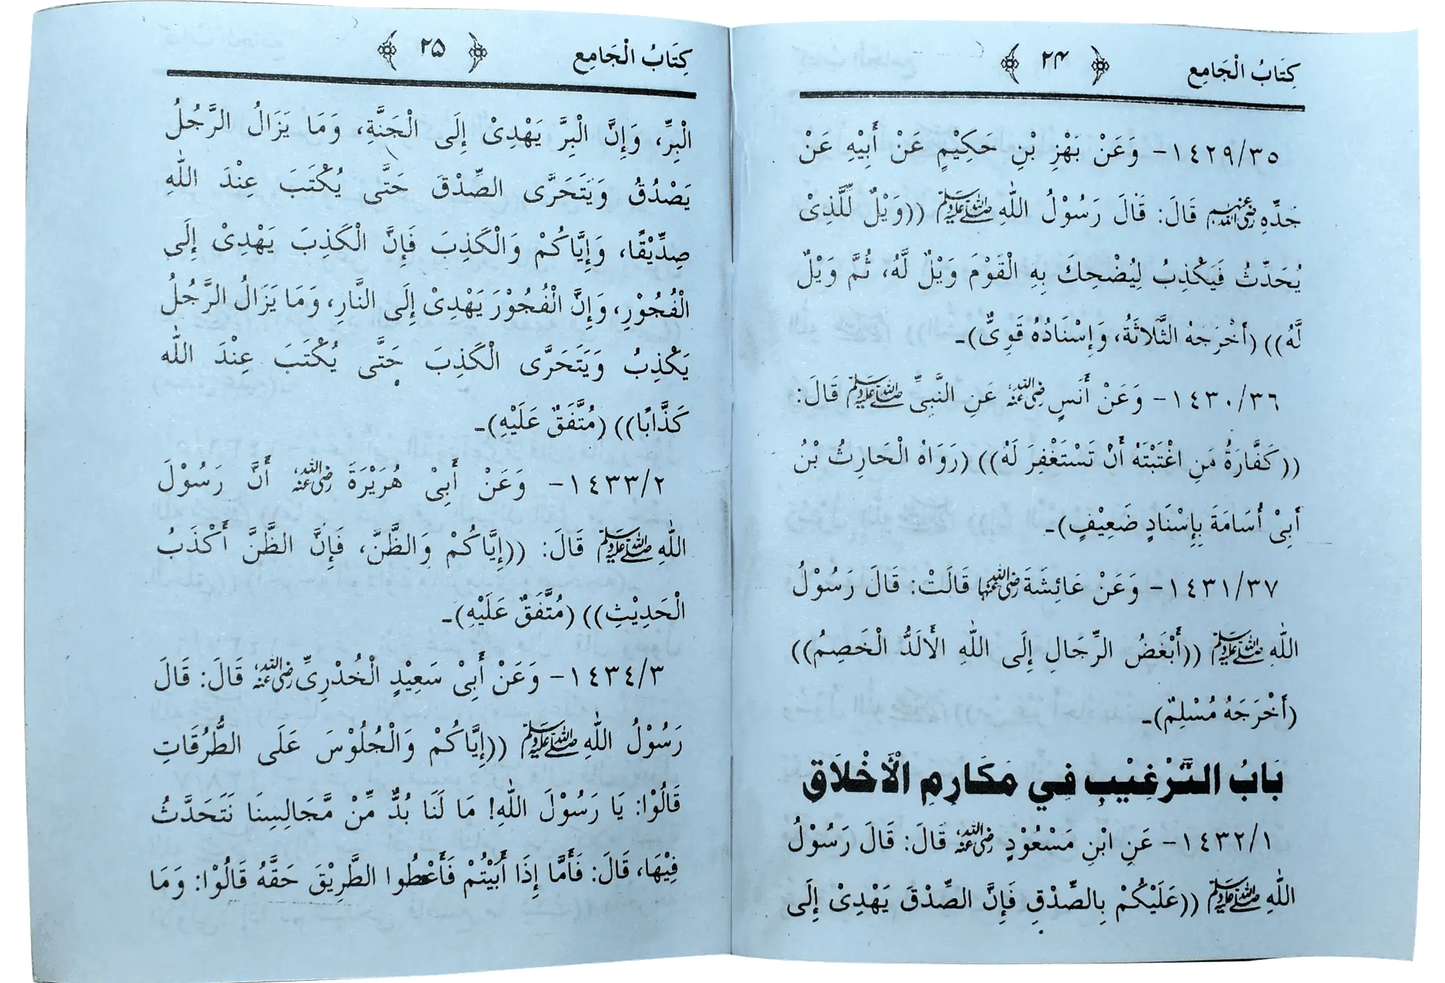 كِتَابُ الْجَامِع ۲۴
١٤٢٩/٣٥- وَعَنْ بَهْزِ بْنِ حَكِيْمٍ عَنْ أَبِيْهِ عَنْ
جَدِّهِ رضي الله عنهم قَالَ: قَالَ رَسُوْلُ اللهِ ﷺ ((وَيْلٌ لِّلَّذِىْ
يُحَدِّثُ فَيَكْذِبُ لِيُضْحِكَ بِهِ الْقَوْمَ وَيْلٌ لَّهُ، ثُمَّ وَيْلٌ
لَّهُ)) (أَخْرَجَهُ الثَّلَاثَةُ، وَإِسْنَادُهُ قَوِىٌّ)ـ
١٤٣٠/٣٦- وَعَنْ أَنَسٍ رضي الله عنه عَنِ النَّبِىِّ ﷺ قَالَ:
((كَفَّارَةُ مَنِ اغْتَبْتَهُ أَنْ تَسْتَغْفِرَ لَهُ)) (رَوَاهُ الْحَارِثُ بْنُ
أَبِىْ أُسَامَةَ بِإِسْنَادٍ ضَعِيْفٍ)ـ
١٤٣١/٣٧- وَعَنْ عَائِشَةَ رضي الله عنها قَالَتْ: قَالَ رَسُوْلُ
اللهِ ﷺ ((أَبْغَضُ الرِّجَالِ إِلَى اللهِ الْأَلَدُّ الْخَصِمُ))
(أَخْرَجَهُ مُسْلِمٌ)ـ
بَابُ التَّرْغِيْبِ فِي مَكَارِمِ الْأَخْلَاقِ
١٤٣٢/١- عَنِ ابْنِ مَسْعُوْدٍ رضي الله عنه قَالَ: قَالَ رَسُوْلُ
اللهِ ﷺ ((عَلَيْكُمْ بِالصِّدْقِ فَإِنَّ الصِّدْقَ يَهْدِىْ إِلَى
كِتَابُ الْجَامِع ۲۵
الْبِرِّ، وَإِنَّ الْبِرَّ يَهْدِىْ إِلَى الْجَنَّةِ، وَمَا يَزَالُ الرَّجُلُ
يَصْدُقُ وَيَتَحَرَّى الصِّدْقَ حَتَّى يُكْتَبَ عِنْدَ اللهِ
صِدِّيْقًا، وَإِيَّاكُمْ وَالْكَذِبَ فَإِنَّ الْكَذِبَ يَهْدِىْ إِلَى
الْفُجُوْرِ، وَإِنَّ الْفُجُوْرَ يَهْدِىْ إِلَى النَّارِ، وَمَا يَزَالُ الرَّجُلُ
يَكْذِبُ وَيَتَحَرَّى الْكَذِبَ حَتَّى يُكْتَبَ عِنْدَ اللهِ
كَذَّابًا)) (مُتَّفَقٌ عَلَيْهِ)ـ
١٤٣٣/٢- وَعَنْ أَبِىْ هُرَيْرَةَ رضي الله عنه أَنَّ رَسُوْلَ
اللهِ ﷺ قَالَ: ((إِيَّاكُمْ وَالظَّنَّ، فَإِنَّ الظَّنَّ أَكْذَبُ
الْحَدِيْثِ)) (مُتَّفَقٌ عَلَيْهِ)ـ
١٤٣٤/٣- وَعَنْ أَبِىْ سَعِيْدٍ الْخُدْرِىِّ رضي الله عنه قَالَ: قَالَ
رَسُوْلُ اللهِ ﷺ ((إِيَّاكُمْ وَالْجُلُوْسَ عَلَى الطُّرُقَاتِ
قَالُوْا: يَا رَسُوْلَ اللهِ! مَا لَنَا بُدٌّ مِّنْ مَّجَالِسِنَا نَتَحَدَّثُ
فِيْهَا، قَالَ: فَأَمَّا إِذَا أَبَيْتُمْ فَأَعْطُوا الطَّرِيْقَ حَقَّهُ قَالُوْا: وَمَا